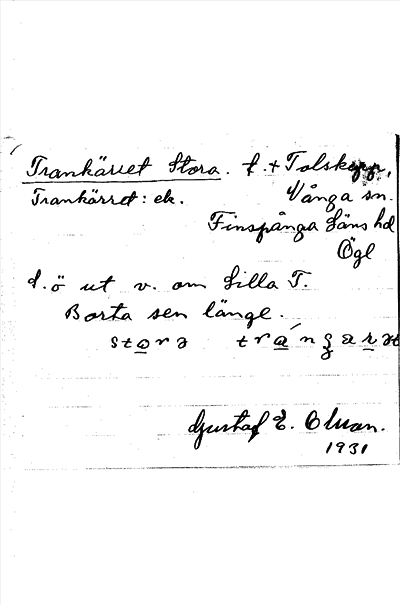 Trankärret Stora. f. + Tolskepp,
Trankärret: ek. Vånga sn.
Finspånga läns hd
Ögl
f. ö ut v. om Lilla T.
Borta sen länge.
Gustaf E. Olson.
1931